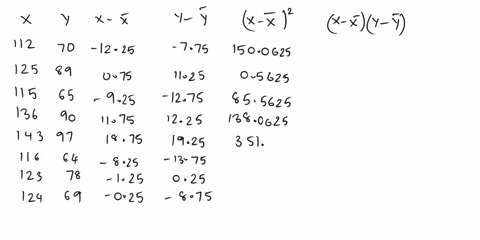 x y x - x̄ y - ȳ (x - x̄)² (x - x̄)(y - ȳ)
112 70 -12.25 -7.75 150.0625
125 89 0.75 11.25 0.5625
115 65 -9.25 -12.75 85.5625
136 90 11.75 12.25 138.0625
143 97 18.75 19.25 351.
116 64 -8.25 -13.75
123 78 -1.25 0.25
124 69 -0.25 -8.75